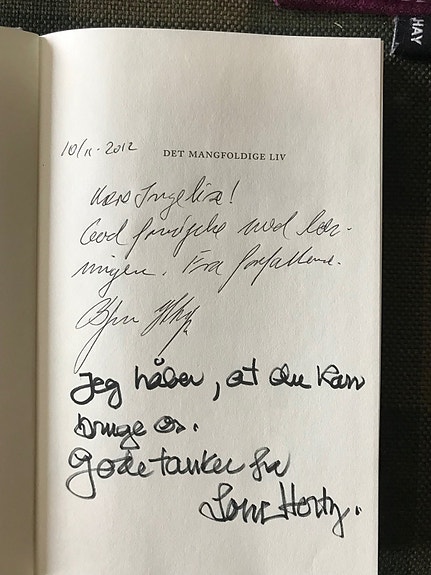 HAY
10/11-2012
DET MANGFOLDIGE LIV
Kære Ingelise!
God fornøjelse med læs-
ningen. Fra forfatterne.
Jeg håber, at du kan
bruge os.
Gode tanker fra
Lone Hertz.